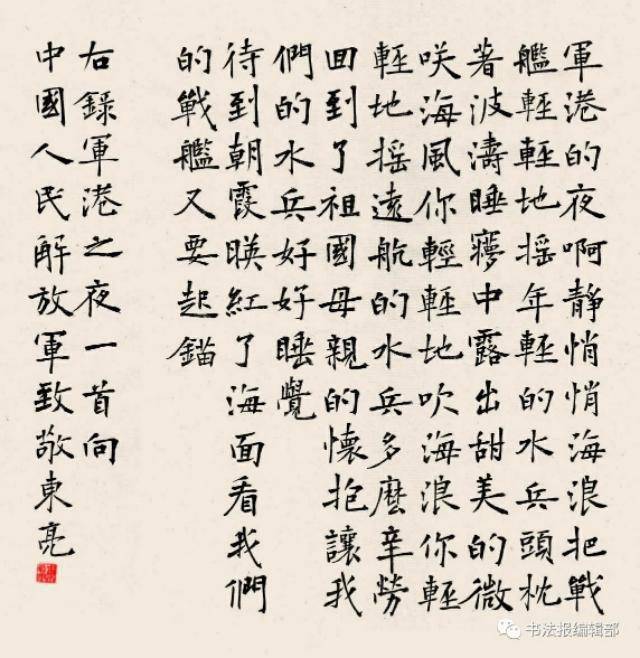 軍港的夜啊靜悄悄海浪把戰
艦輕輕地摇年輕的水兵頭枕
著波濤睡夢中露出甜美的微
咲海風你輕輕地吹海浪你輕
輕地摇遠航的水兵多麼辛勞
回到了祖國母親的懷抱讓我
們的水兵好好睡覺
待到朝霞暎紅了海面看我們
的戰艦又要起錨
右錄軍港之夜一首向
中國人民解放軍致敬東亮
书法报编辑部